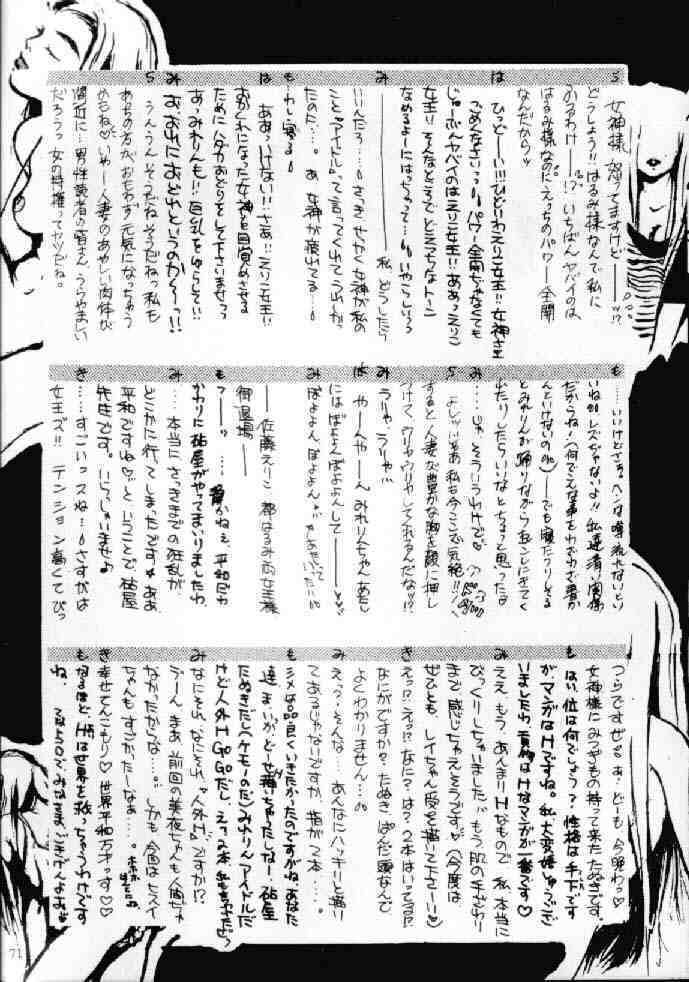 ら 女神様、怒ってますけど——ッ!!?
どうしよう!! はるみ様なんで私に
ふるわけ——!!? いちばんヤバイのは、
はるみ様なのに えっちのパワー全開
なんだからッ
は ひっど——い!!! ひどいわえりこ女王!! 女神さま
ごめんなさいっ パワー全開ぢゃなくても
じゅーぶんヤバイのはえりこ女王!! ああっえりこ
女王!! そんなところで とろっちなトーン
なめるよーにはっちゃって… いやらしいっっ
み ————————私、どうしたら
いいんだろ…。さっきせっかく女神が私の
こと"アイドル"って言ってくれてうれしかっ
たのに…。あ、女神が疲れてる…。
も わし寝る
は ああっいけない!! さあ!! えりこ女王!!
おかくれになった女神を目覚めさせる
ために ハダカおどりをして下さいませっ
あ、みれりんも!! 巨乳をゆらして!!
み おおれにおどれというのか〜っ!!
ら うんうんそうだねそうだねっ 私も
あっちの方が、おもわず元気になっちゃう
のもね♡ いやー人妻のあやしい肉体が
間近に…男性読者の皆さん、うらやましい
だろうっ 女の特権ってヤツだね。
も …いいけどさぁ。ヘンな噂流れないといー
いね!! レズぢゃないよ!! 私達清い関係
だからね! (何でこんな事をわざわざ書か
んといけないのだ)——でも寝たフリしてる
とみれりんが踊りながらおこしにきてく
出たりしたらいいなとちょっと思ったな
み …じゃ、そういうわけで
ら よしッ!! じゃあ私も今ここで気絶!!
すると人妻な豊かな胸を顔に押し
つけて、ウリャウリャしてくれるんだなッ!!?
み うりゃ、うりゃ
は やーん やーん みれりんちゃん あたし
にはぼよよんぼよよんして———♡♡
み ぼよよん、ぼよよん
——佐藤えりこ・都はるみ両女王様
御退場——
も ?——ッ …静かねえ、平和だわ
かわりに砧屋がやってまいりましたわ
み …本当にさっきまでの狂乱が
どこかに行ってしまったです。ああ、
平和ですね♡ ということで砧屋
先生です。いらっしゃいませ♪
き ……すごいっスね…。さすがは
女王ズ!! テンション高くてびっ
つらですぜ。あ、どーも、今晩わっ♡
女神様にみつぎもの持って来たたぬきです。
も はい、位は何でしょう? 性格は手下です
がマンガはHですね。私、大変嬉しゅうござ
いましたわ。貢物はHなマンガが一番です♡
み ええ、もう、あんまりHなもので 私 本当に
びっくりしちゃいました。もう肌の手ざわり
まで感じちゃえそうですッ (今度は
ぜひとも、レイちゃん受を描いて下さーい)
き えっ!? えっ!? なに? は? 2本はいってる!?
なにがですか? たぬき ぱんだ頭なんで
よくわかりません…
み えっっ…そんな…あんなにハッキリと描い
てあるじゃないですか 指が2本…。
も シメは品良くいきたかったのですがねあなた
達。まいっか、どーせ描いちゃったしなー。砧屋
たぬきだし(ペケモーのだ)みれりんアイドルだ
けど人外H GoGoだし。えっ2本、私もわかんなーいっ
み なにそれ なにそれ "人外H"ですか!?
うーん、まあ 前回の美夜ちゃんも人間じゃ
なかったからな…。しかも今回はヒスイ
ちゃんもすごかったしなぁ…。
き 幸せてんこもり♡ 世界平和万才っす♡
も なるほど、Hは世界を救っちゃうわけです
ね。
71